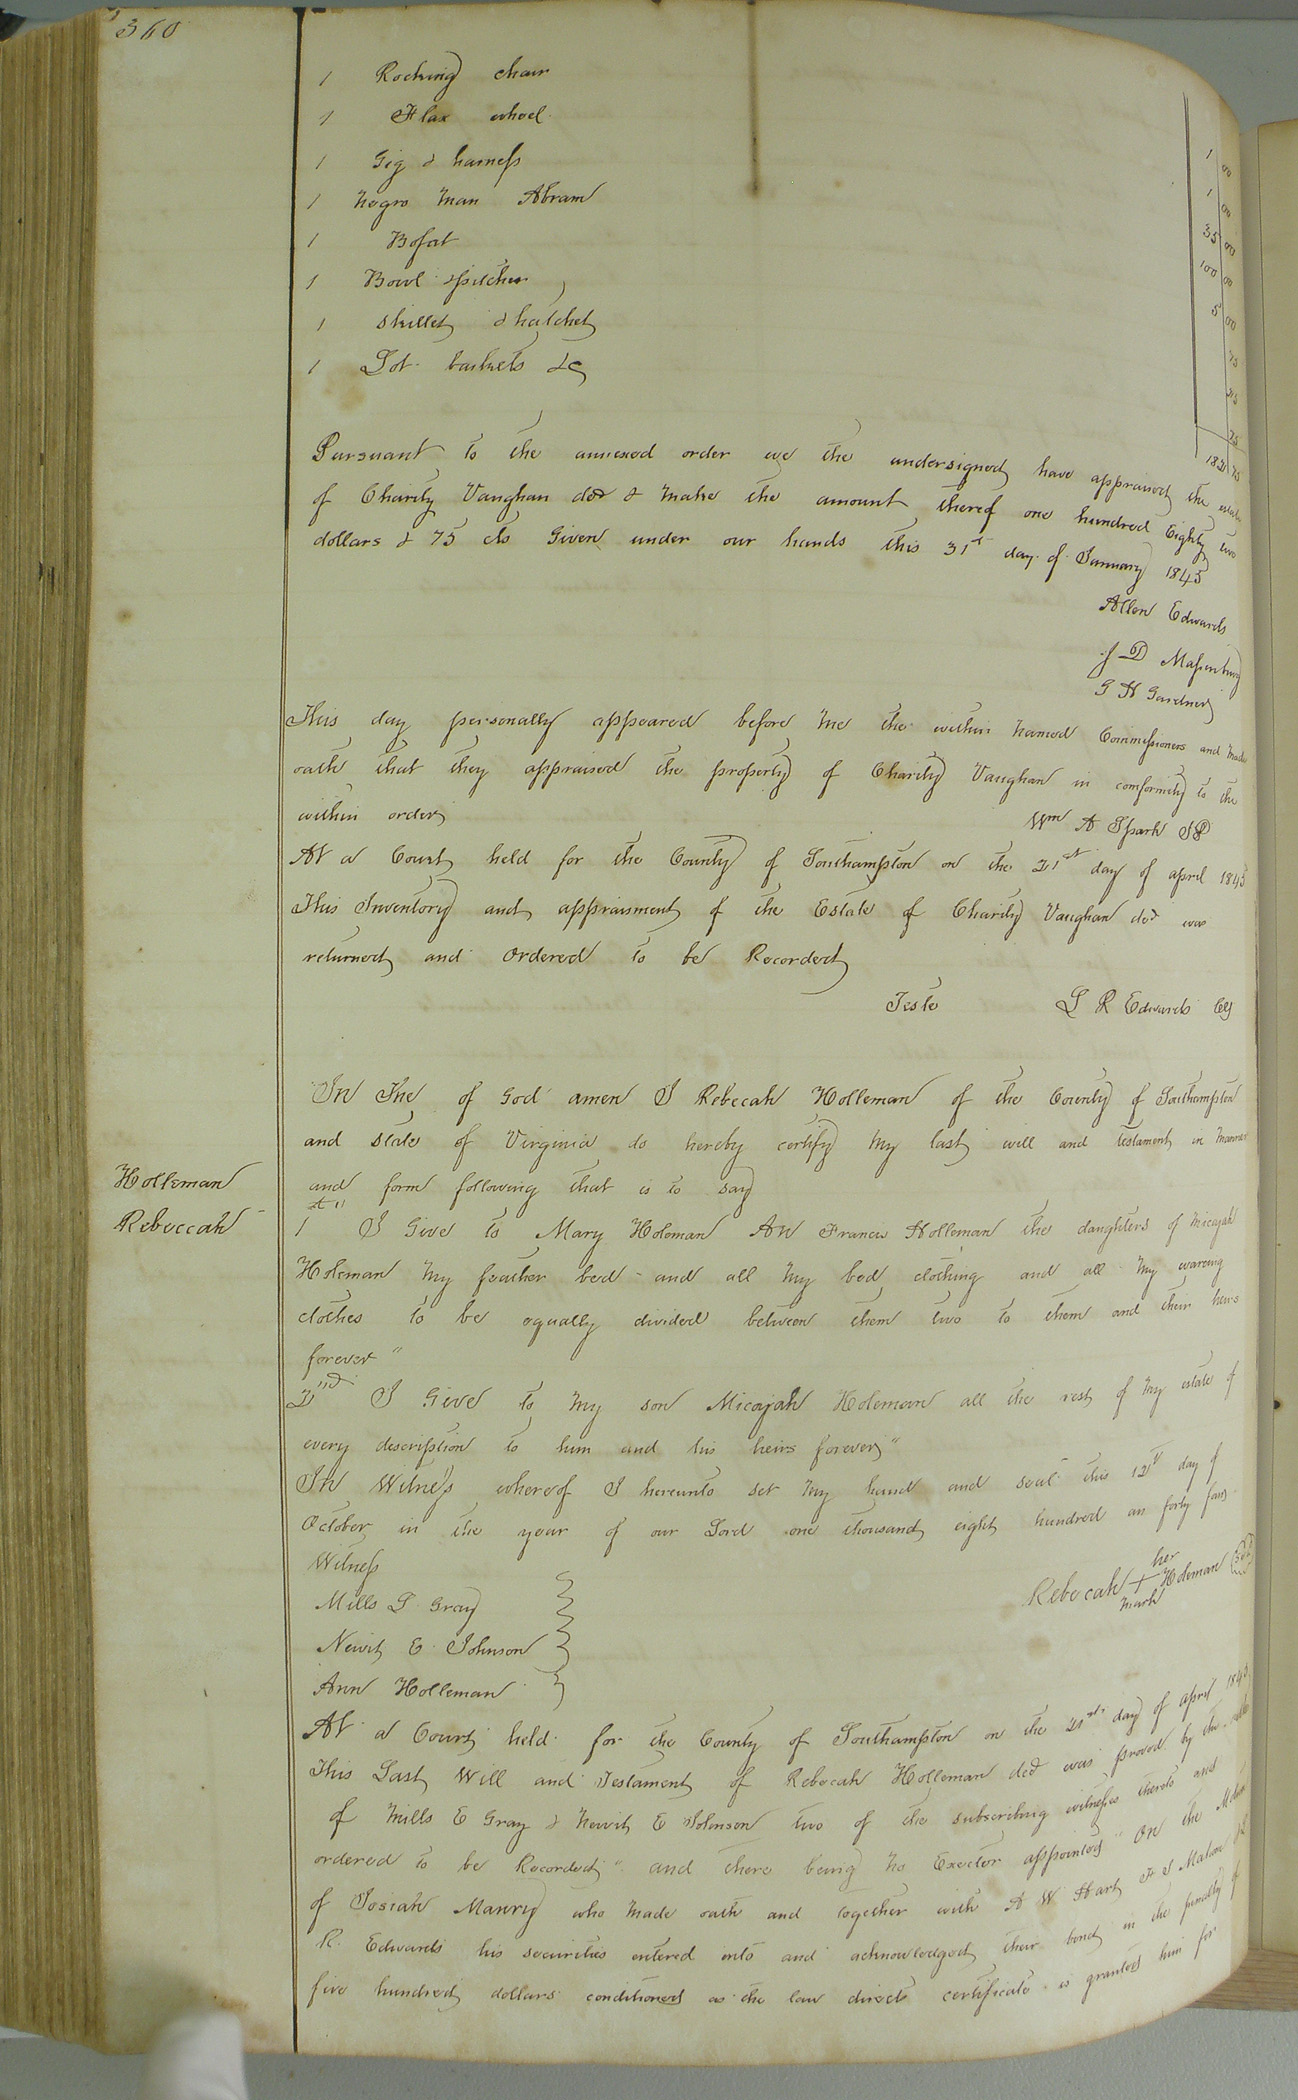 360
1 Rocking chair 1 00
1 Flax wheel 1 00
1 Gig & harness 35 00
1 Negro Man Abram 100 00
1 Bofat 5 00
1 Bowl & pitcher 75
1 skillet & hatchet
1 Lot baskets &c 75
182 75
Pursuant to the annexed order we the undersigned have appraised the estate
of Charity Vaughan decd & make the amount thereof one hundred Eighty two
dollars & 75 cts Given under our hands this 31st day of January 1845
Allen Edwards
J D Massenburg
G H Gardner
This day personally appeared before me the within named Commissioners and made
oath that they appraised the property of Charity Vaughan in comformity to the
within order
Wm A Spark JP
At a Court held for the County of Southampton on the 21st day of april 1845
This Inventory and appraisment of the Estate of Charity Vaughan decd was
returned and Ordered to be Recorded
Teste L R Edwards Clk
In The of God amen I Rebecah Holleman of the County of Southampton
and state of Virginia do hereby certify my last will and testament in manner
Holleman
Rebeccah
and form following that is to say
1st I Give to Mary Holeman An Francis Holleman the daughters of Micajah
Holeman my feather bed and all my bed clothing and all my waring
clothes to be equally divided between them two to them and their heirs
forever "
2nd I Give to my son Micajah Holeman all the rest of my estate of
every description to him and his heirs forever "
In Witness whereof I hereunto set my hand and seal this 12th day of
October in the year of our Lord one thousand eight hundred an forty four
Witness
her
Rebecah + Holeman
mark
Mills L Gray
Newit E Johnson
Ann Holleman
At a Court held for the County of Southampton on the 21st day of april 1845
This Last Will and Testament of Rebecah Holleman decd was proved by the oaths
of Mills E Gray & Newit E Johnson two of the subscribing witnesses thereto and
ordered to be Recorded " and there being no Exector appointed " On the Motion
of Josiah Manry who made oath and together with A W Hart
R. Edwards his securities entered into and acknowledged their bond in the penalty of
five hundred dollars conditioned as the law directs certificate is granted him for